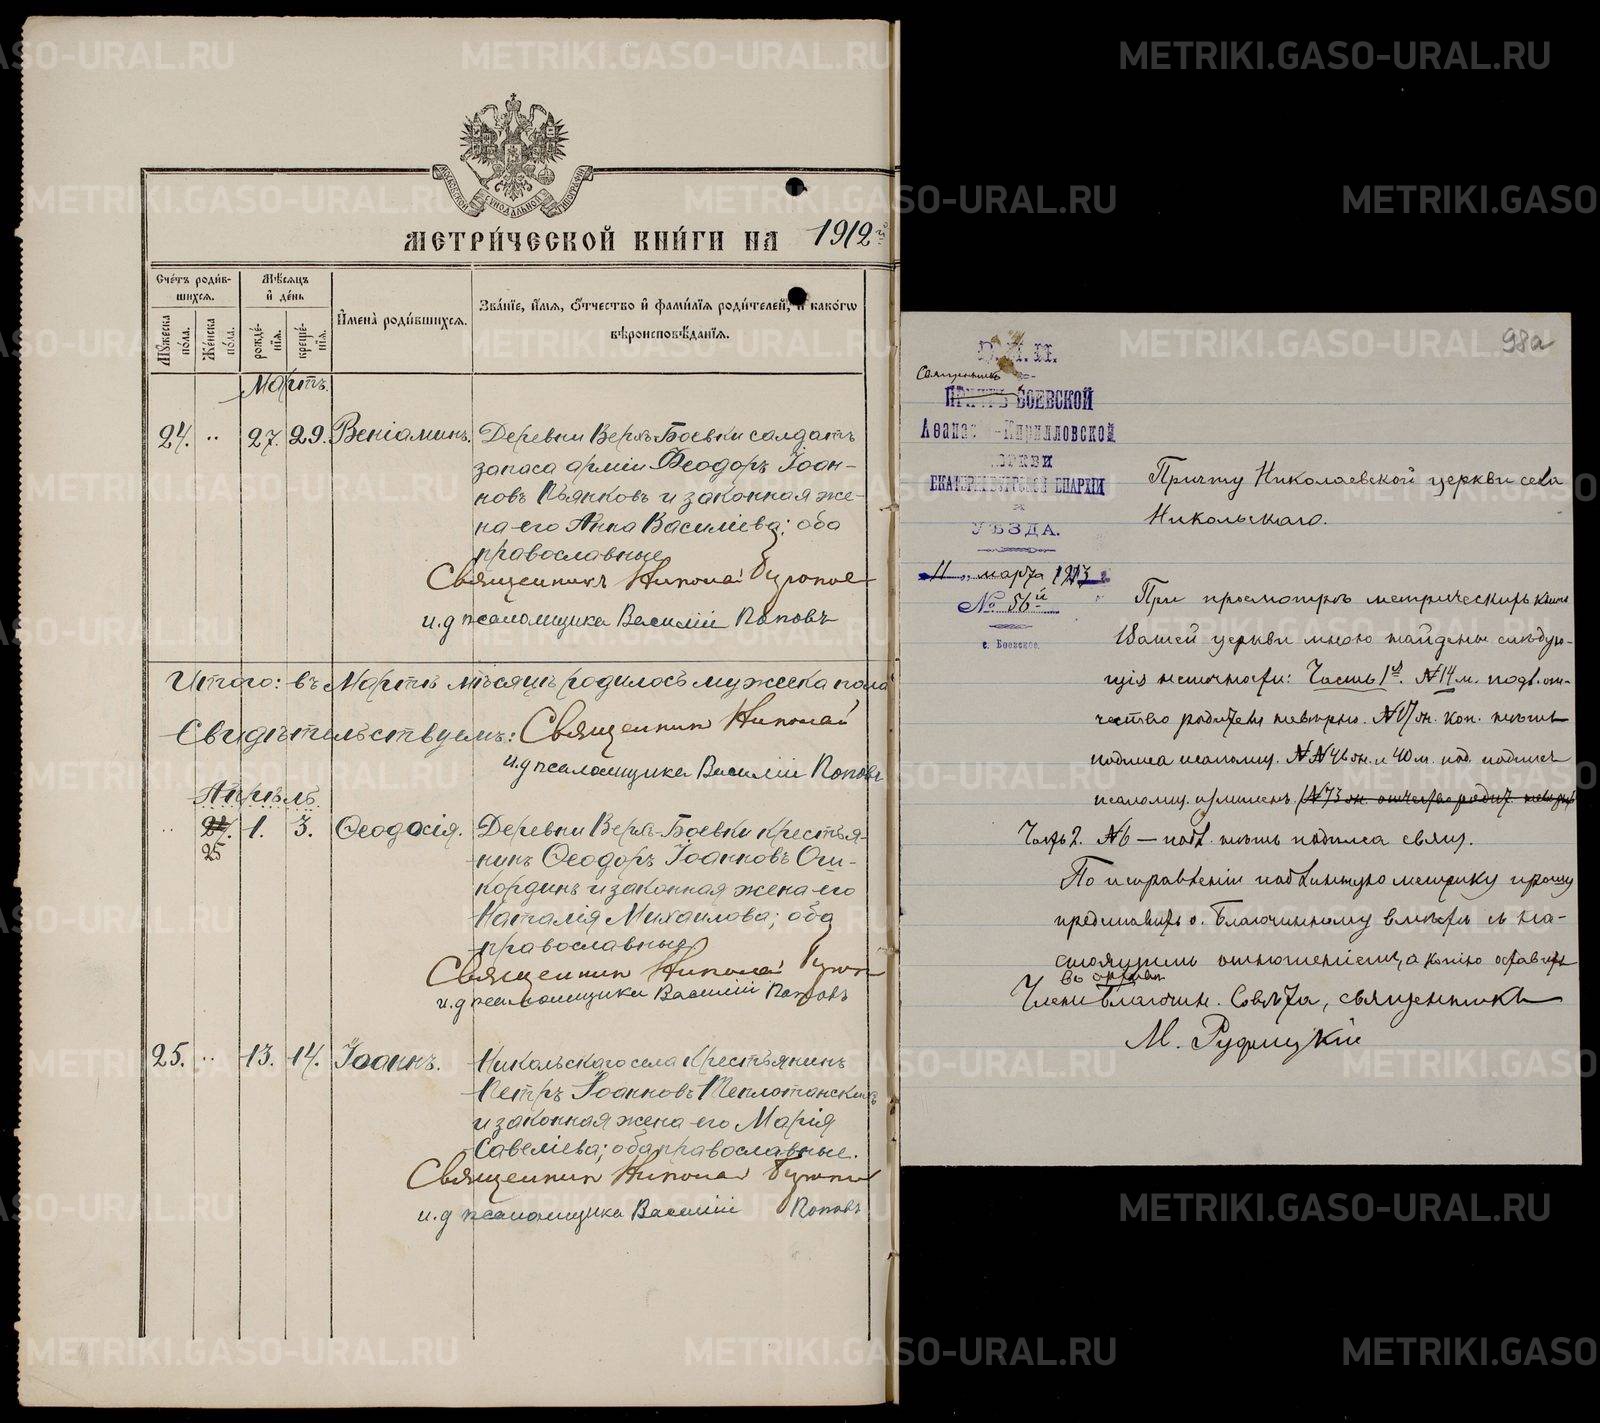 METRIKI.GASO-URAL.RU
МЕТРИ́ЧЕСКОЙ КНИ́ГИ НА 1912й
Сче́тъ роди́в-
шихся.
Мѣ́сяцъ
и҆ де́нь
Му́жеска по́ла.
Же́нска по́ла.
рожде́-
нїя.
креще́-
нїя.
И҆мена̀ роди́вшихся.
Зва́нїе, и҆́мя, ѻ҆́тчество и҆ фами́лїя роди́телей, и҆ како́гѡ
вѣроисповѣ́данїя.
Мартъ.
24. „ 27. 29. Венiаминъ. Деревни Верхъ-Боевки солдатъ
запаса армiи Феодоръ Iоан-
новъ Пьянковъ и законная же-
на его Анна Василiева; оба
православные
Священникъ Николай
и.д псаломщика Василiй Поповъ
Итого: въ Мартѣ мѣсяцѣ родилось мужеска пола
Свидѣтельствуемъ: Священник Николай
и.д псаломщика Василiй Поповъ
Апрѣль.
„ 24. 25 1. 3. Ѳеодосiя. Деревни Верхъ-Боевки крестья-
нинъ Ѳеодоръ Iоанновъ
и законная жена его
Наталiя Михаилова; оба
православные
Священник Николай
и.д псаломщика Василiй Поповъ
25. „ 13. 14. Iоаннъ. Никольскаго села Крестьянинъ
Петръ Iоанновъ Теплотанскихъ
и законная жена его Марiя
Савелiева; оба православные.
Священник Николай
и.д псаломщика Василiй Поповъ
98а
В.П.И.
Священникъ
ПРИЧТЪ БОЕВСКОЙ
Аѳанасіе-Кирилловской
ЦЕРКВИ
ЕКАТЕРИНБУРГСКОЙ ЕПАРХІИ
И
УѢЗДА.
11 марта 1913 г.
№ 56й
с. Боевское.
Причту Николаевской церкви села
Никольскаго.
При просмотрѣ метрическихъ книгъ
Вашей церкви мною найдены слѣдую-
щiя неточности: Часть 1я. №14 м. подл. от-
чество родителя невѣрно. №17 ж. коп. нѣтъ
подписа псаломщ. №№46 ж. и 40 м. под. подпись
псаломщ. излишен. (№73 ж. отчество родит. невѣрно)
Часть 2. №6 — подл. нѣтъ подписа свящ.
По исправленiи подлинную метрику прошу
представить о. Благочинному вмѣстѣ съ на-
стоящимъ отношенiемъ, а копiю оставить
въ архивѣ
Членъ Благочин. Совѣта, священникъ
М. Рудницкiй